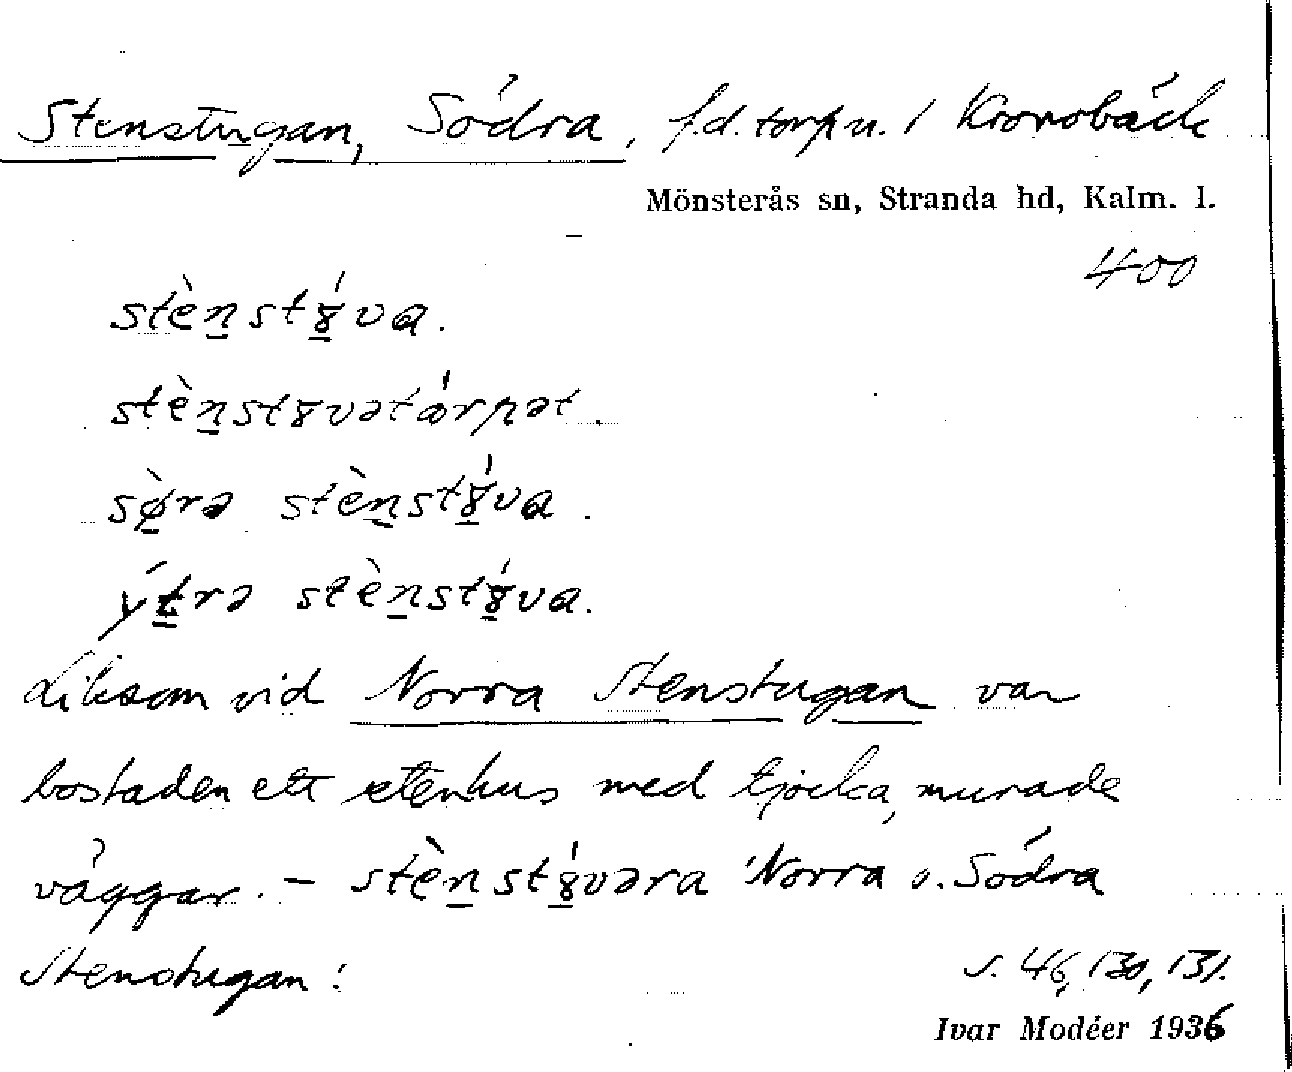 Stenstugan, Södra, f.d. torp u. / Kronobäck
Mönsterås sn, Stranda hd, Kalm. l.
400
stèn̲st8̲́va.
stèn̲st8vətórpət.
sø̲̀rə stèn̲st8̲́va.
ýt̲rə stèn̲st8̲́va.
Liksom vid Norra Stenstugan var
bostaden ett stenhus med tjocka, murade
väggar. – stèn̲st8̲́vəra 'Norra o. Södra
Stenstugan'.
s. 46, 130, 131.
Ivar Modéer 1936